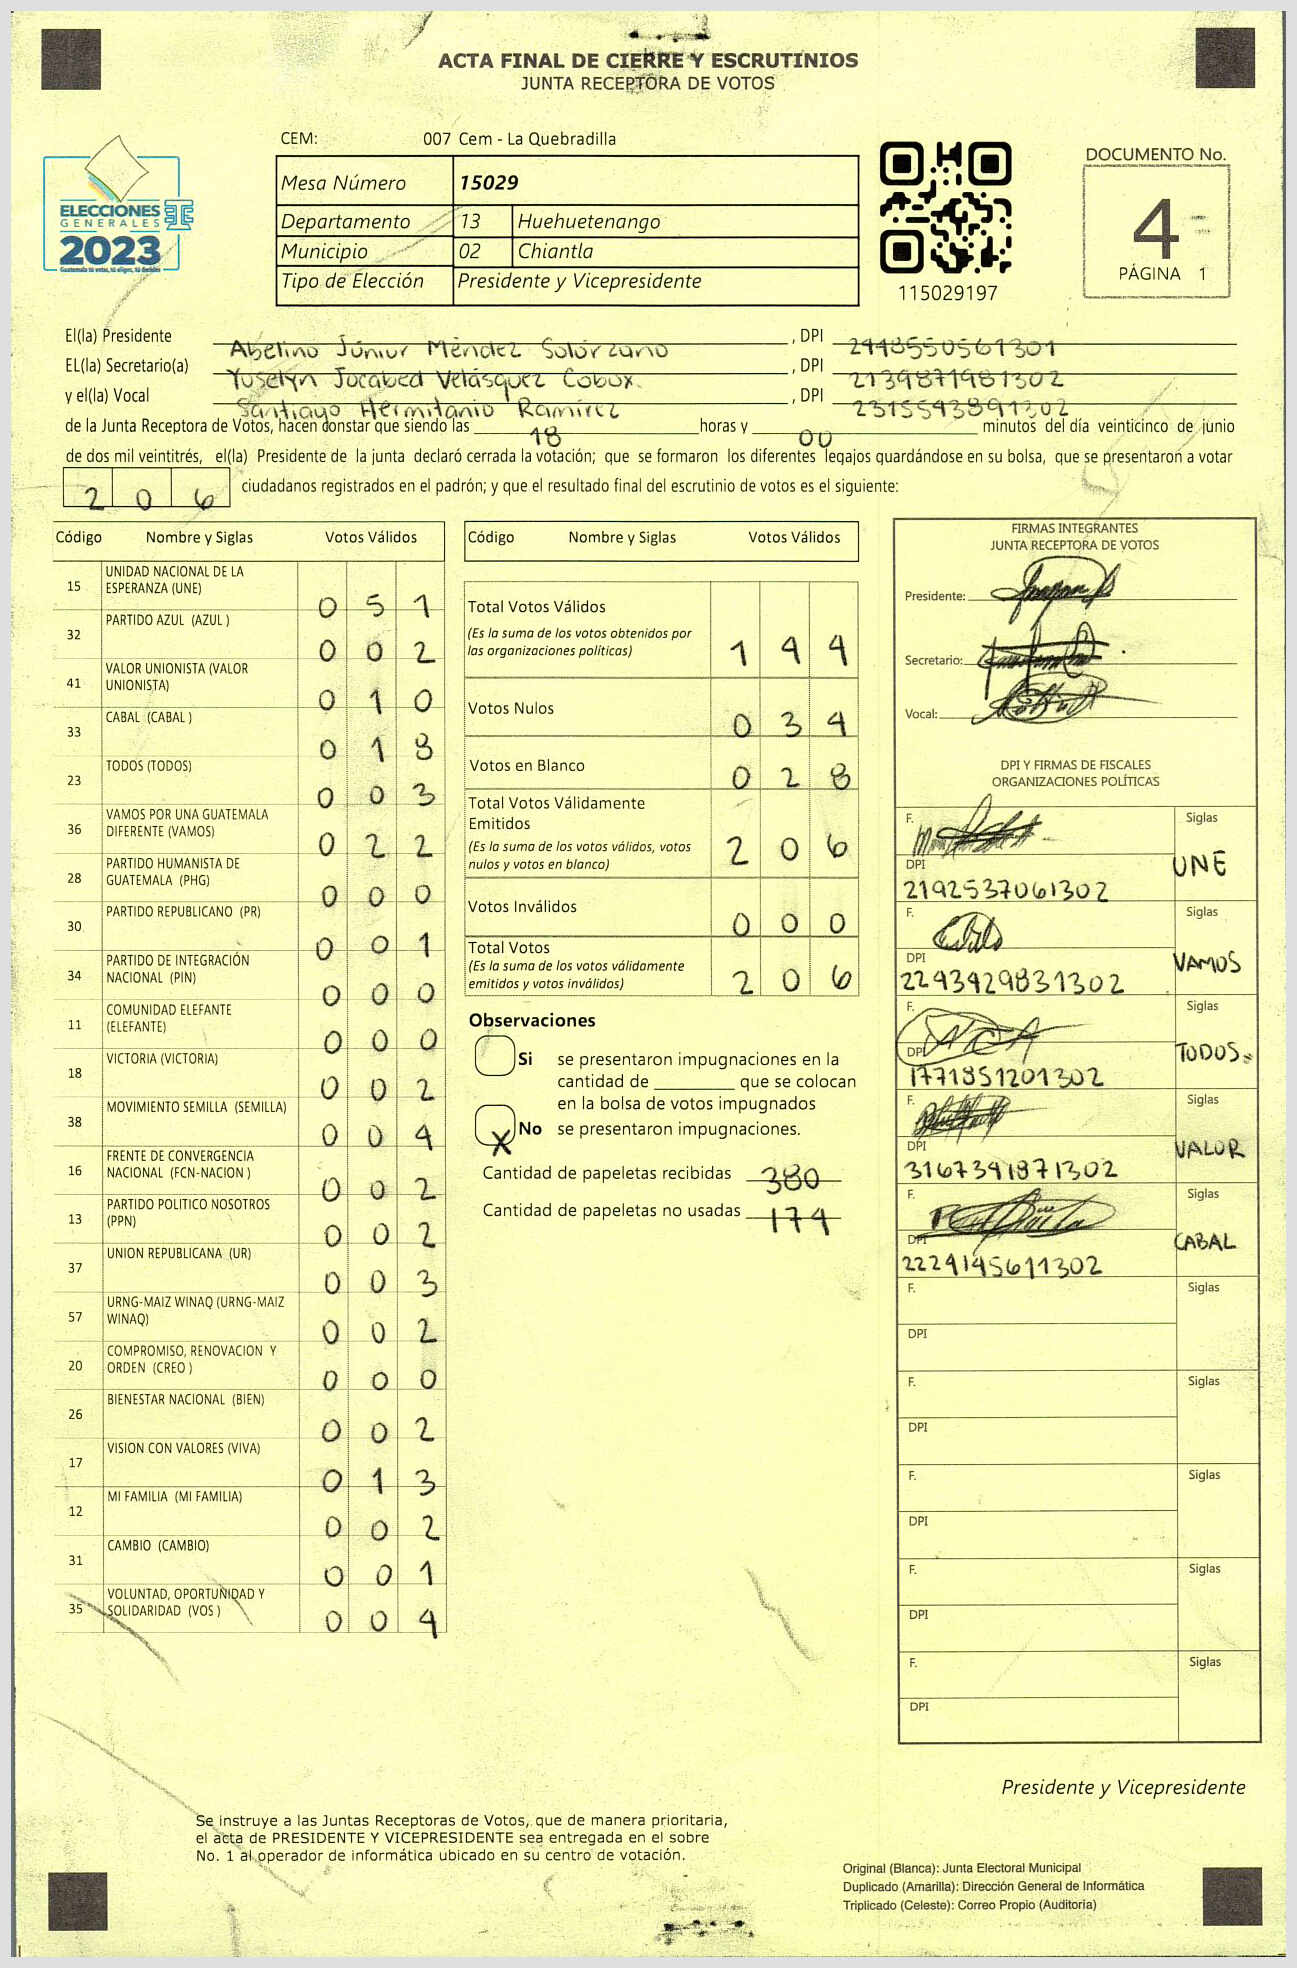 ACTA FINAL DE CIERRE Y ESCRUTINIOS
JUNTA RECEPTORA DE VOTOS
CEM: 007 Cem - La Quebradilla
Mesa Número 15029
Departamento 13 Huehuetenango
Municipio 02 Chiantla
Tipo de Elección Presidente y Vicepresidente
ELECCIONES
GENERALES
2023
Guatemala tú votas, tú eliges, tú decides
115029197
DOCUMENTO No.
4
PÁGINA 1
El(la) Presidente Abelino Júniur Méndez Solórzano , DPI 2448550561301
EL(la) Secretario(a) Yuselyn Jocabed Velásquez Cobox. , DPI 2139871981302
y el(la) Vocal Santiago Hermitanio Ramírez , DPI 2315543891302
de la Junta Receptora de Votos, hacen constar que siendo las 18 horas y 00 minutos del día veinticinco de junio
de dos mil veintitrés, el(la) Presidente de la junta declaró cerrada la votación; que se formaron los diferentes legajos guardándose en su bolsa, que se presentaron a votar
206 ciudadanos registrados en el padrón; y que el resultado final del escrutinio de votos es el siguiente:
Código Nombre y Siglas Votos Válidos
15 UNIDAD NACIONAL DE LA
ESPERANZA (UNE) 051
32 PARTIDO AZUL (AZUL ) 002
41 VALOR UNIONISTA (VALOR
UNIONISTA) 010
33 CABAL (CABAL ) 018
23 TODOS (TODOS) 003
36 VAMOS POR UNA GUATEMALA
DIFERENTE (VAMOS) 022
28 PARTIDO HUMANISTA DE
GUATEMALA (PHG) 000
30 PARTIDO REPUBLICANO (PR) 001
34 PARTIDO DE INTEGRACIÓN
NACIONAL (PIN) 000
11 COMUNIDAD ELEFANTE
(ELEFANTE) 000
18 VICTORIA (VICTORIA) 002
38 MOVIMIENTO SEMILLA (SEMILLA) 004
16 FRENTE DE CONVERGENCIA
NACIONAL (FCN-NACION ) 002
13 PARTIDO POLITICO NOSOTROS
(PPN) 002
37 UNION REPUBLICANA (UR) 003
57 URNG-MAIZ WINAQ (URNG-MAIZ
WINAQ) 002
20 COMPROMISO, RENOVACION Y
ORDEN (CREO ) 000
26 BIENESTAR NACIONAL (BIEN) 002
17 VISION CON VALORES (VIVA) 013
12 MI FAMILIA (MI FAMILIA) 002
31 CAMBIO (CAMBIO) 001
35 VOLUNTAD, OPORTUNIDAD Y
SOLIDARIDAD (VOS ) 004
Código Nombre y Siglas Votos Válidos
Total Votos Válidos
(Es la suma de los votos obtenidos por
las organizaciones políticas) 144
Votos Nulos 034
Votos en Blanco 028
Total Votos Válidamente
Emitidos
(Es la suma de los votos válidos, votos
nulos y votos en blanco) 206
Votos Inválidos 000
Total Votos
(Es la suma de los votos válidamente
emitidos y votos inválidos) 206
Observaciones
Si se presentaron impugnaciones en la
cantidad de ________ que se colocan
en la bolsa de votos impugnados
X No se presentaron impugnaciones.
Cantidad de papeletas recibidas 380
Cantidad de papeletas no usadas 174
FIRMAS INTEGRANTES
JUNTA RECEPTORA DE VOTOS
Presidente:
Secretario:
Vocal:
DPI Y FIRMAS DE FISCALES
ORGANIZACIONES POLÍTICAS
F. Siglas
DPI UNE
2192537061302
F. Siglas
DPI VAMOS
2243429831302
F. Siglas
DPI TODOS
1771851201302
F. Siglas
DPI VALOR
3167341871302
F. Siglas
DPI CABAL
2224145611302
F. Siglas
DPI
F. Siglas
DPI
F. Siglas
DPI
F. Siglas
DPI
F. Siglas
DPI
Presidente y Vicepresidente
Se instruye a las Juntas Receptoras de Votos, que de manera prioritaria,
el acta de PRESIDENTE Y VICEPRESIDENTE sea entregada en el sobre
No. 1 al operador de informática ubicado en su centro de votación.
Original (Blanca): Junta Electoral Municipal
Duplicado (Amarilla): Dirección General de Informática
Triplicado (Celeste): Correo Propio (Auditoria)